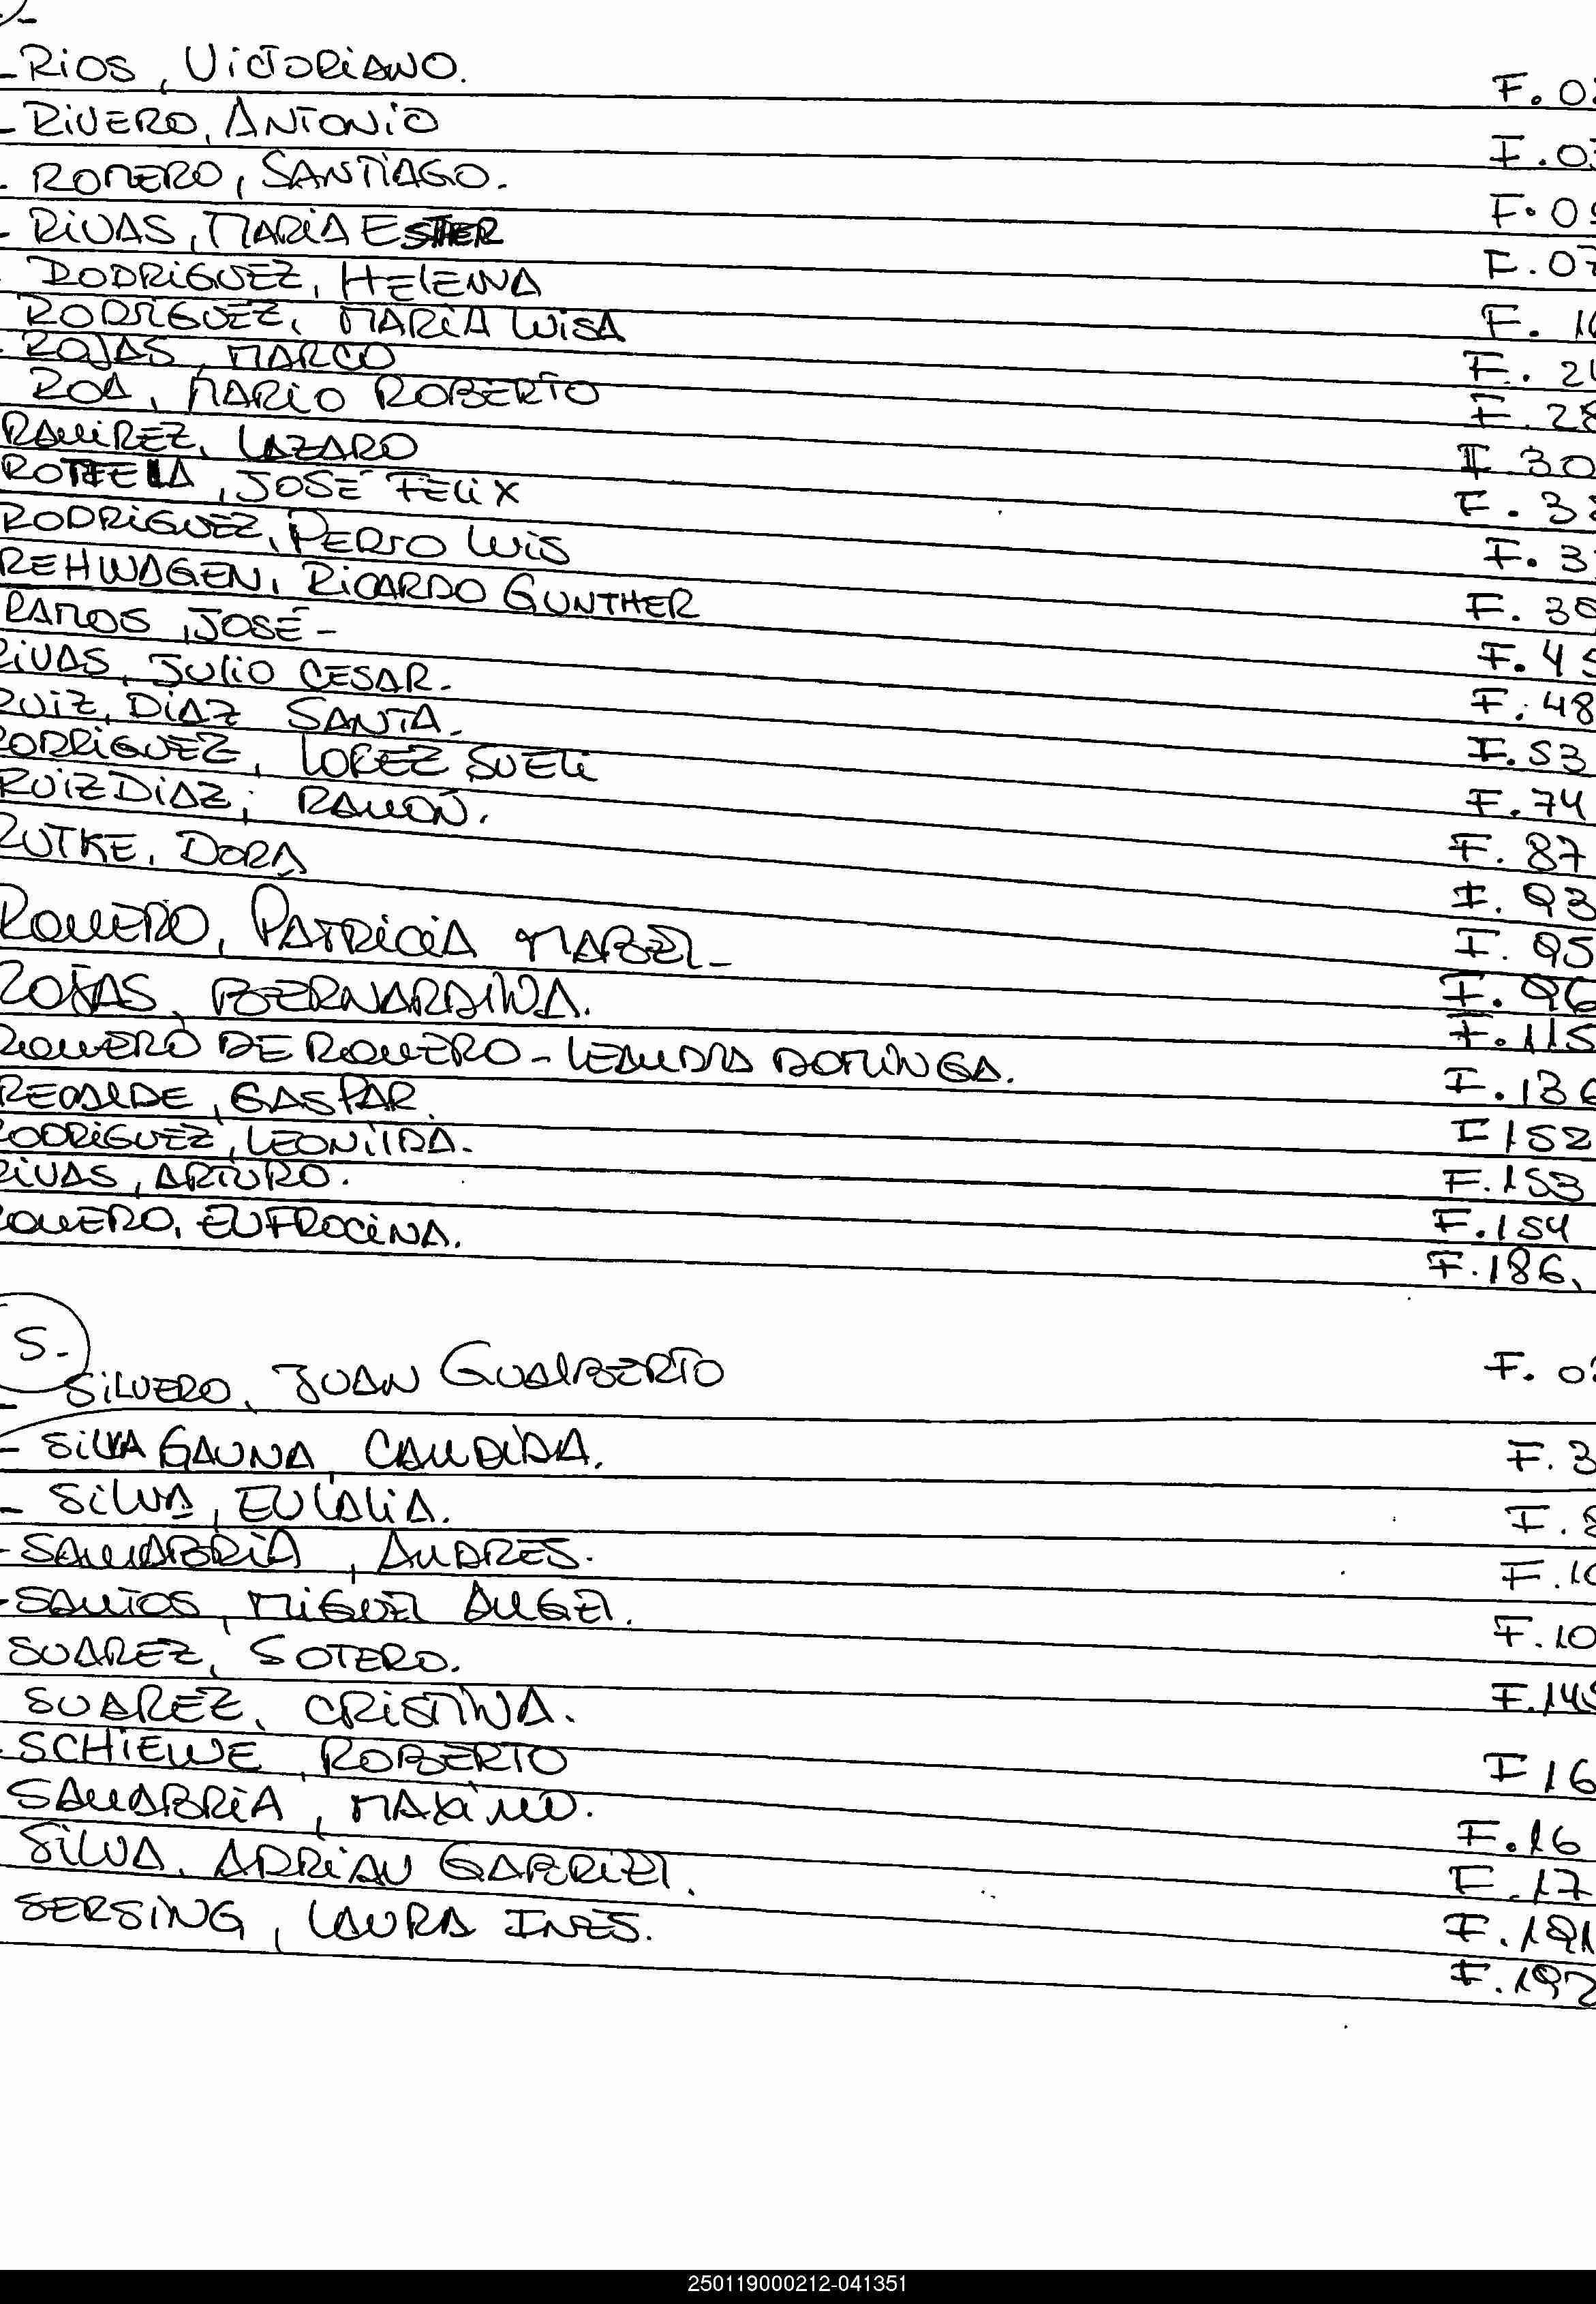 - RIOS, VICTORIANO. F. 0
- RIVERO, ANTONIO F. 0
- ROMERO, SANTIAGO. F. 0
- RIVAS, MARIA ESTHER F. 07
RODRIGUEZ, HELENNA F. 1
RODRIGUEZ, MARIA LUISA F. 2
- ROJAS, MARCO F. 28
ROA, MARIO ROBERTO F. 30
RAMIREZ, LAZARO F. 3
ROTTELA, JOSÉ FELIX F. 3
RODRIGUEZ, PEDRO LUIS F. 3
REHWAGEN, RICARDO GUNTHER F. 4
RAMOS, JOSÉ - F. 48
RIVAS, JULIO CESAR. F. 53
RUIZ, DIAZ SANTA. F. 74
RODRIGUEZ, LOPEZ SUELI F. 87
RUIZ DIAZ, RAMON. F. 93
RUTKE, DORA F. 95
ROMERO, PATRICIA MABEL - F. 96
ROJAS, BERNARDINA. F. 115
ROMERO DE ROMERO - LEANDRA DOMINGA. F. 136
RECALDE, GASPAR. F 152
RODRIGUEZ, LEONILDA. F. 153
RIVAS, ARTURO. F. 154
ROMERO, EUFROCINA. F. 186.
S.-
- SILVERO, JUAN GUALBERTO F. 0
- SILVA GAUNA, CANDIDA. F. 3
- SILVA, EULALIA. F. 8
- SANABRIA, ANDRES. F. 10
- SANTOS, MIGUEL ANGEL. F. 10
SUAREZ, SOTERO. F. 145
SUAREZ, CRISTINA. F 16
- SCHIEWE, ROBERTO F. 16
SANABRIA, MAXIMO. F. 17
SILVA, ADRIAN GABRIEL. F. 191
SERSING, LAURA INES. F. 192
250119000212-041351